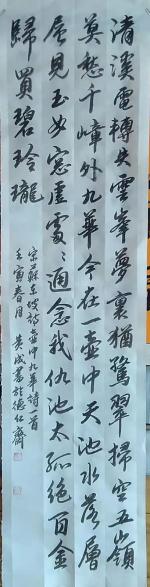 清溪電轉失雲峯夢裏猶驚翠掃空五嶺
莫愁千嶂外九華今在一壺中天池水落層
層見玉女窓虛處〻通念我仇池太孤絕百金
歸買碧玲瓏
宋蘇東坡詩壺中九華詩一首
壬寅春月 黄成書於德仁齋